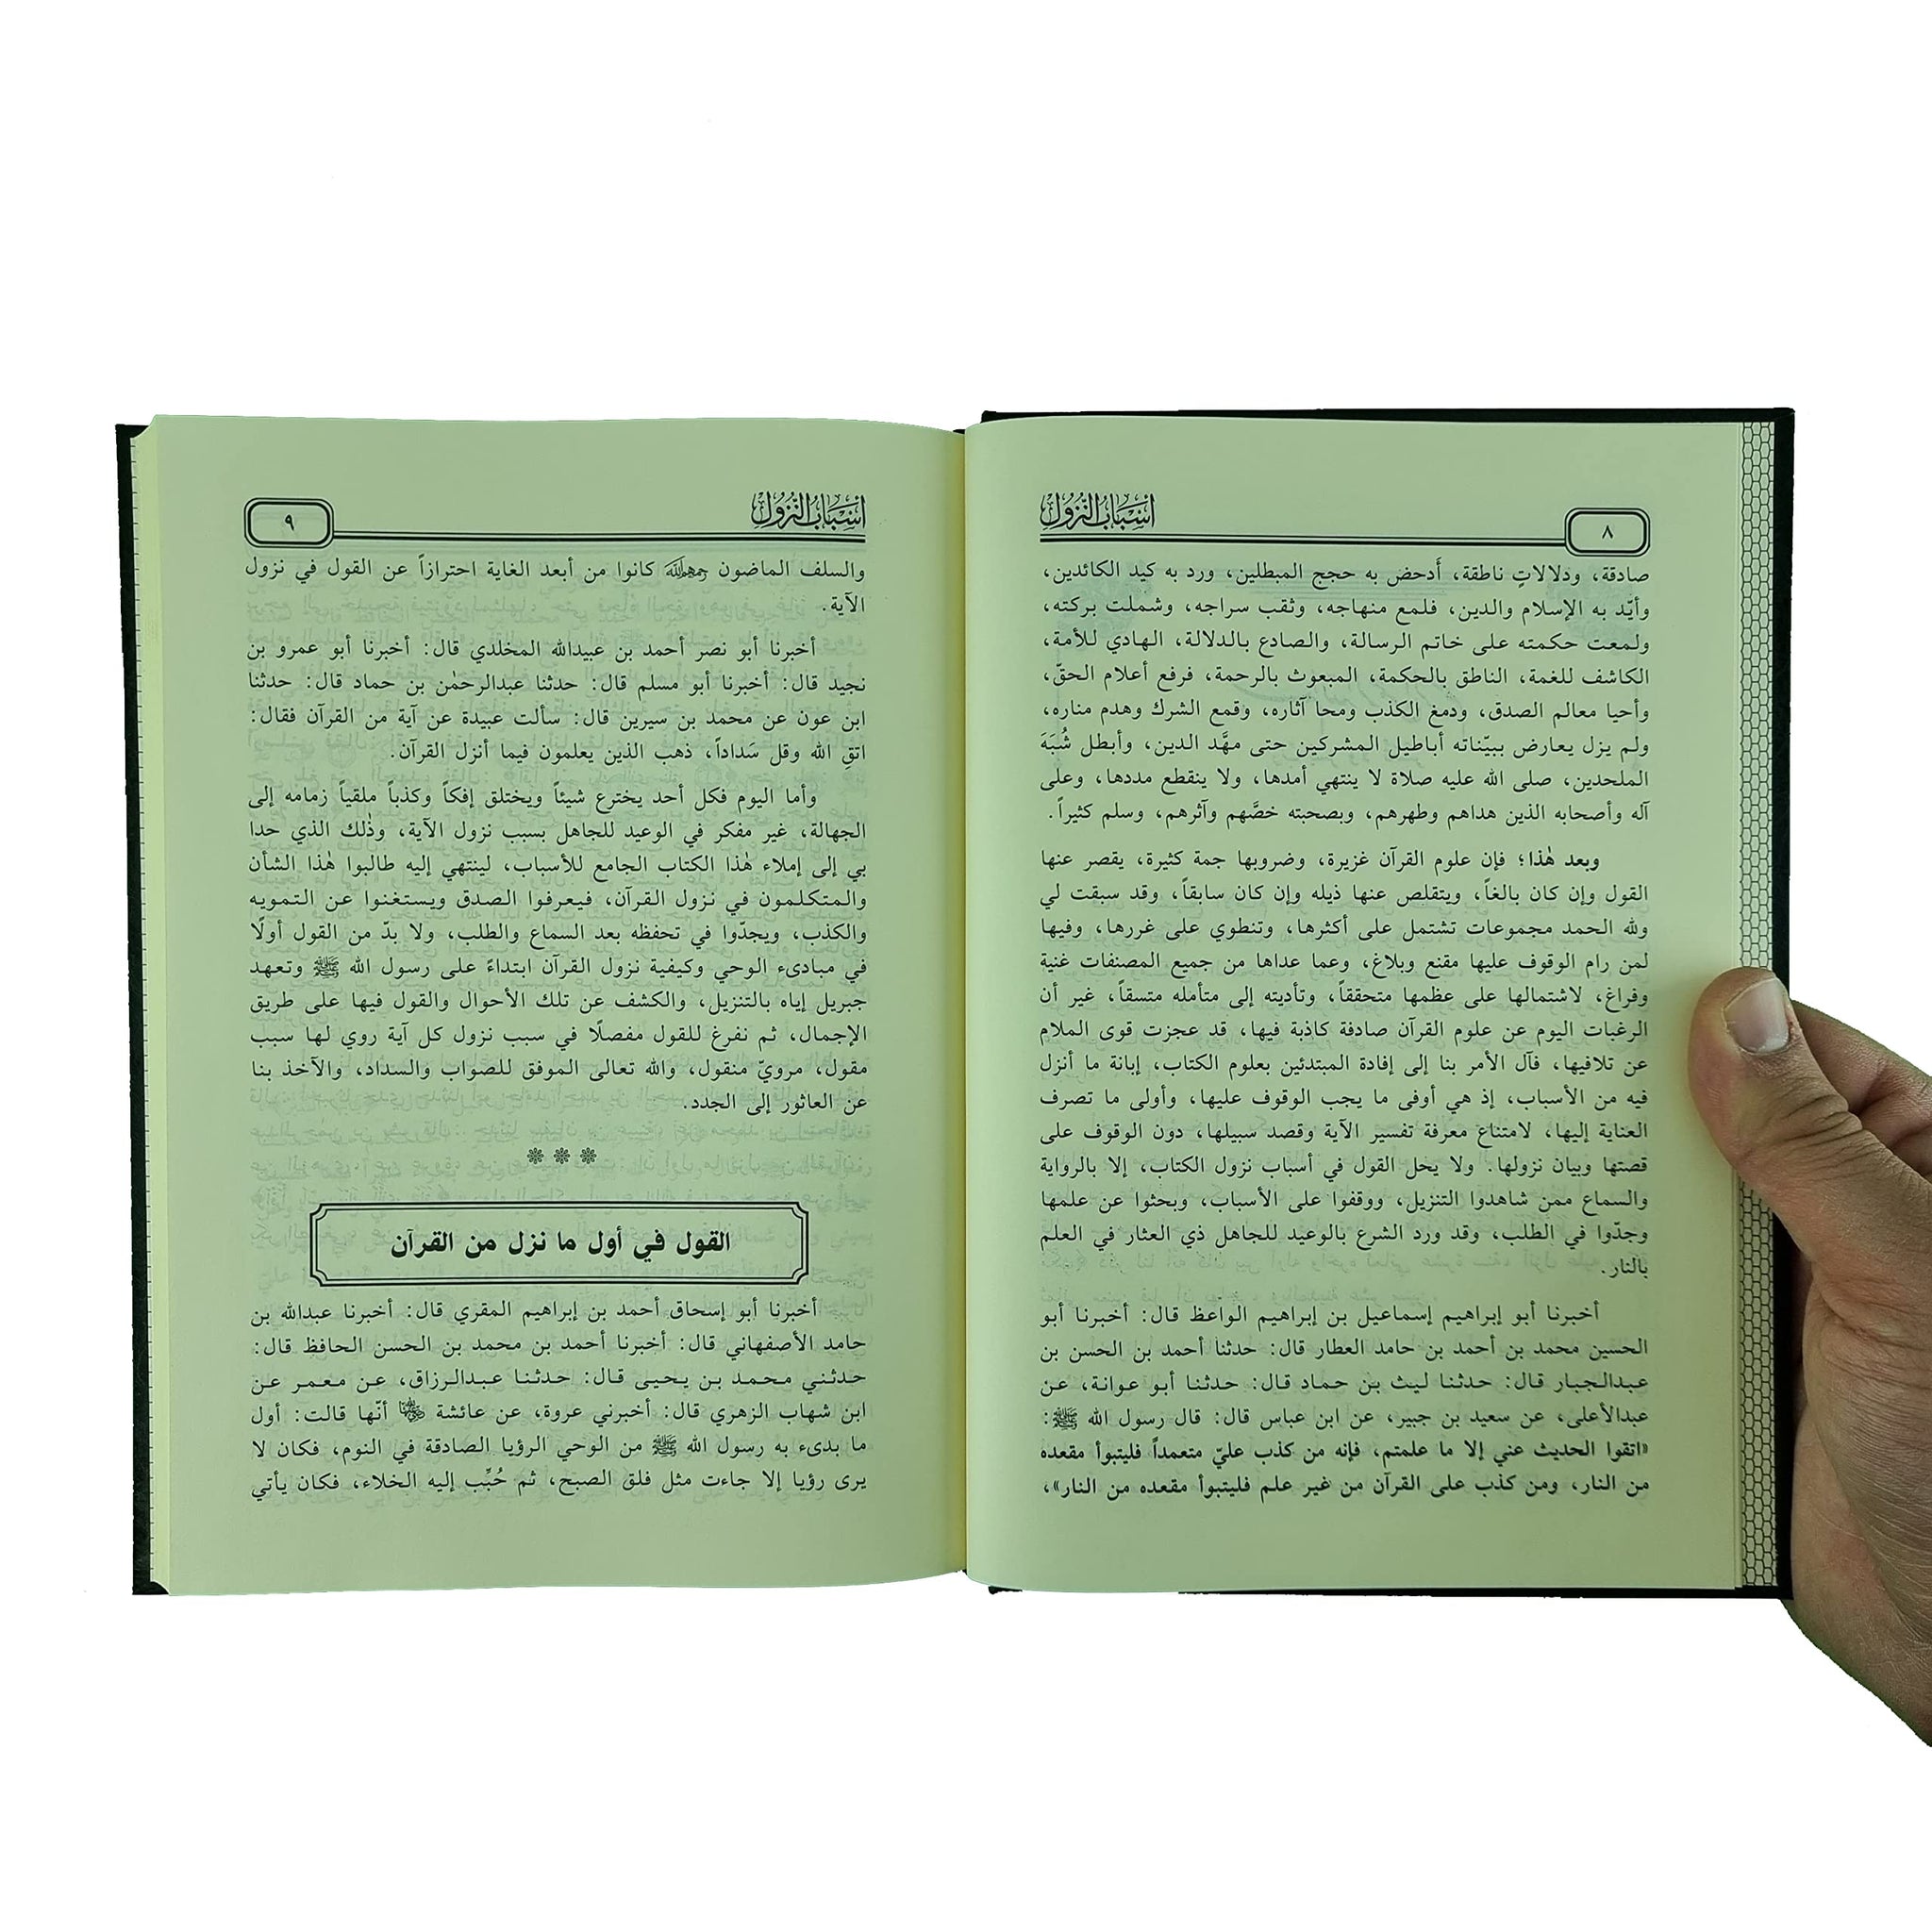 ٨
أسباب النزول
صادقة، ودلالاتٍ ناطقة، أَدحض به حجج المبطلين، ورد به كيد الكائدين،
وأيّد به الإسلام والدين، فلمع منهاجه، وثقب سراجه، وشملت بركته،
ولمعت حكمته على خاتم الرسالة، والصادع بالدلالة، الهادي للأمة،
الكاشف للغمة، الناطق بالحكمة، المبعوث بالرحمة، فرفع أعلام الحقّ،
وأحيا معالم الصدق، ودمغ الكذب ومحا آثاره، وقمع الشرك وهدم مناره،
ولم يزل يعارض ببيّناته أباطيل المشركين حتى مهَّد الدين، وأبطل شُبَهَ
الملحدين، صلى الله عليه صلاة لا ينتهي أمدها، ولا ينقطع مددها، وعلى
آله وأصحابه الذين هداهم وطهرهم، وبصحبته خصَّهم وآثرهم، وسلم كثيراً.
وبعد هٰذا؛ فإن علوم القرآن غزيرة، وضروبها جمة كثيرة، يقصر عنها
القول وإن كان بالغاً، ويتقلص عنها ذيله وإن كان سابقاً، وقد سبقت لي
ولله الحمد مجموعات تشتمل على أكثرها، وتنطوي على غررها، وفيها
لمن رام الوقوف عليها مقنع وبلاغ، وعما عداها من جميع المصنفات غنية
وفراغ، لاشتمالها على عظمها متحققاً، وتأديته إلى متأمله متسقاً، غير أن
الرغبات اليوم عن علوم القرآن صادفة كاذبة فيها، قد عجزت قوى الملام
عن تلافيها، فآل الأمر بنا إلى إفادة المبتدئين بعلوم الكتاب، إبانة ما أنزل
فيه من الأسباب، إذ هي أوفى ما يجب الوقوف عليها، وأولى ما تصرف
العناية إليها، لامتناع معرفة تفسير الآية وقصد سبيلها، دون الوقوف على
قصتها وبيان نزولها. ولا يحل القول في أسباب نزول الكتاب، إلا بالرواية
والسماع ممن شاهدوا التنزيل، ووقفوا على الأسباب، وبحثوا عن علمها
وجدّوا في الطلب، وقد ورد الشرع بالوعيد للجاهل ذي العثار في العلم
بالنار.
أخبرنا أبو إبراهيم إسماعيل بن إبراهيم الواعظ قال: أخبرنا أبو
الحسين محمد بن أحمد بن حامد العطار قال: حدثنا أحمد بن الحسن بن
عبدالجبار قال: حدثنا ليث بن حماد قال: حدثنا أبو عوانة، عن
عبدالأعلى، عن سعيد بن جبير، عن ابن عباس قال: قال رسول الله ﷺ:
«اتقوا الحديث عني إلا ما علمتم، فإنه من كذب عليّ متعمداً فليتبوأ مقعده
من النار، ومن كذب على القرآن من غير علم فليتبوأ مقعده من النار»،
أسباب النزول
٩
والسلف الماضون رحمهم الله كانوا من أبعد الغاية احترازاً عن القول في نزول
الآية.
أخبرنا أبو نصر أحمد بن عبيدالله المخلدي قال: أخبرنا أبو عمرو بن
نجيد قال: أخبرنا أبو مسلم قال: حدثنا عبدالرحمٰن بن حماد قال: حدثنا
ابن عون عن محمد بن سيرين قال: سألت عبيدة عن آية من القرآن فقال:
اتقِ الله وقل سَداداً، ذهب الذين يعلمون فيما أنزل القرآن.
وأما اليوم فكل أحد يخترع شيئاً ويختلق إفكاً وكذباً ملقياً زمامه إلى
الجهالة، غير مفكر في الوعيد للجاهل بسبب نزول الآية، وذٰلك الذي حدا
بي إلى إملاء هٰذا الكتاب الجامع للأسباب، لينتهي إليه طالبوا هٰذا الشأن
والمتكلمون في نزول القرآن، فيعرفوا الصدق ويستغنوا عن التمويه
والكذب، ويجدّوا في تحفظه بعد السماع والطلب، ولا بدّ من القول أولًا
في مبادىء الوحي وكيفية نزول القرآن ابتداءً على رسول الله ﷺ وتعهد
جبريل إياه بالتنزيل، والكشف عن تلك الأحوال والقول فيها على طريق
الإجمال، ثم نفرغ للقول مفصلًا في سبب نزول كل آية روي لها سبب
مقول، مرويّ منقول، والله تعالى الموفق للصواب والسداد، والآخذ بنا
عن العاثور إلى الجدد.
القول في أول ما نزل من القرآن
أخبرنا أبو إسحاق أحمد بن إبراهيم المقري قال: أخبرنا عبدالله بن
حامد الأصفهاني قال: أخبرنا أحمد بن محمد بن الحسن الحافظ قال:
حدثني محمد بن يحيى قال: حدثنا عبدالرزاق، عن معمر عن
ابن شهاب الزهري قال: أخبرني عروة، عن عائشة رضي الله عنها أنّها قالت: أول
ما بدىء به رسول الله ﷺ من الوحي الرؤيا الصادقة في النوم، فكان لا
يرى رؤيا إلا جاءت مثل فلق الصبح، ثم حُبِّب إليه الخلاء، فكان يأتي